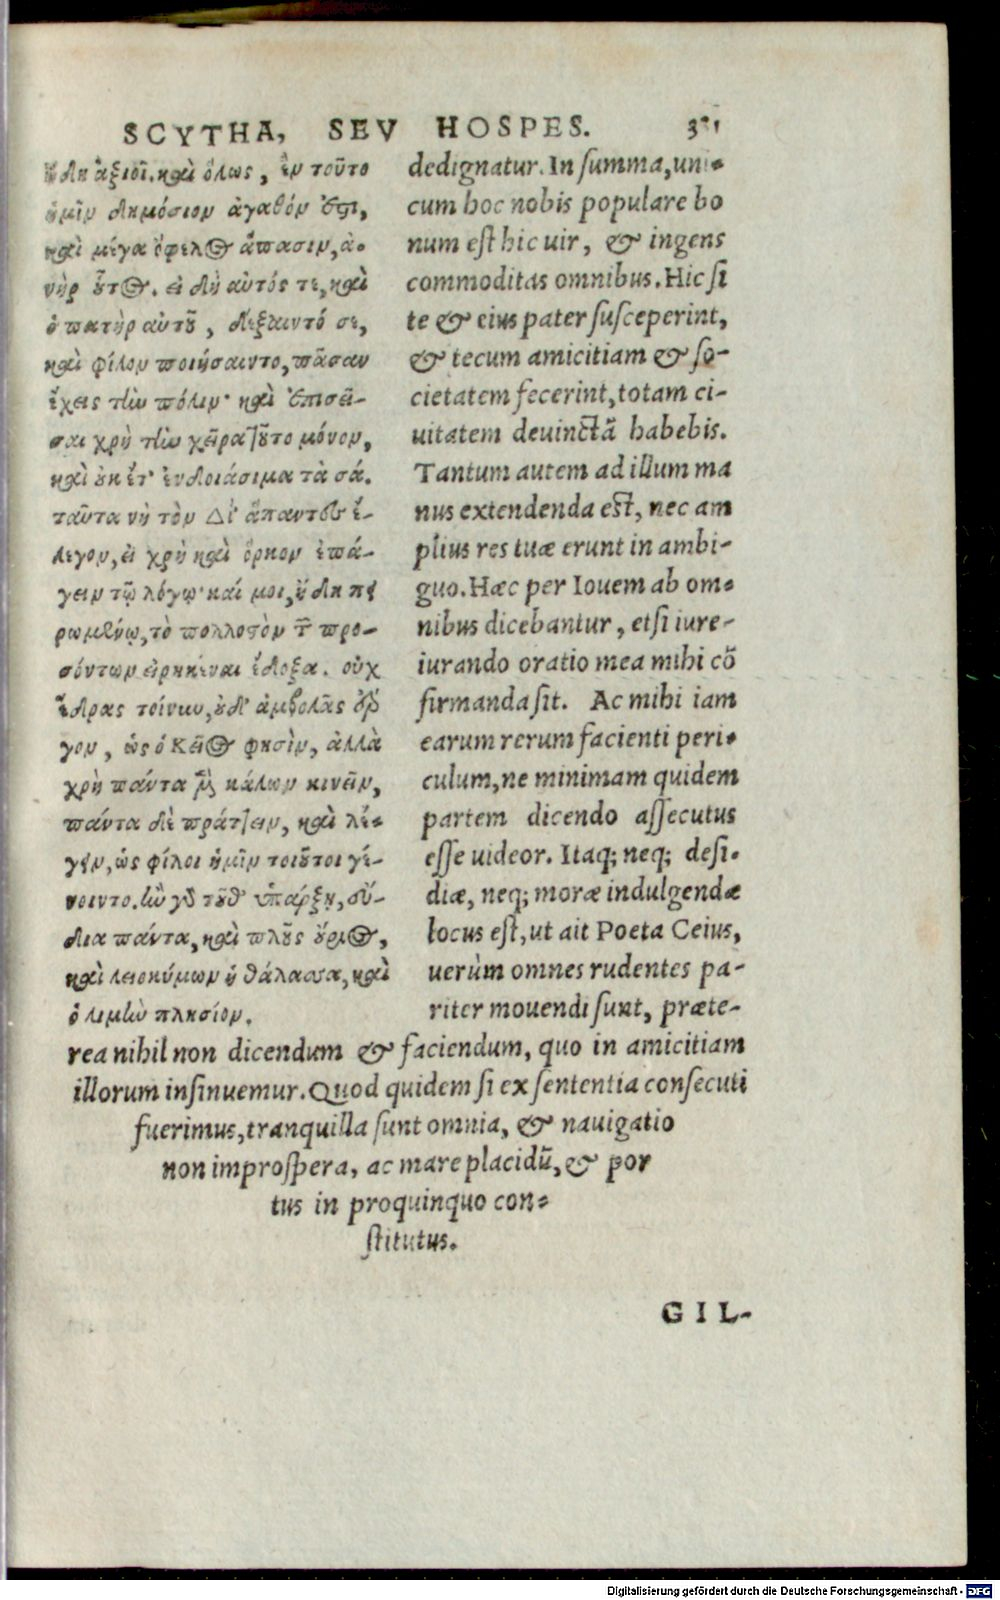 SCYTHA, SEV HOSPES.
δη ἀξιοῖ. καὶ ὅλως, ἓν τοῦτο
ἡμῖν δημόσιον ἀγαθόν ἐστι,
καὶ μέγα ὄφελος ἅπασιν, ἀ-
νὴρ οὗτος. εἰ δὴ αὐτός τε, καὶ
ὁ πατὴρ αὐτοῦ, δέξαιντό σε,
καὶ φίλον ποιήσαιντο, πᾶσαν
ἔχεις τὴν πόλιν· καὶ ἐπισεῖ-
σαι χρὴ τὴν χεῖρα τοῦτο μόνον,
καὶ οὐκ ἔτ' ἐνδοιάσιμα τὰ σά.
ταῦτα νὴ τὸν Δί' ἅπαντες ἔ-
λεγον, εἰ χρὴ καὶ ὅρκον ἐπά-
γειν τῷ λόγῳ· καί μοι, ἤδη πε
ρωμένῳ, τὸ πολλοστὸν τῶν προ-
σόντων εἰρηκέναι ἔδοξα. οὐχ
ἕδρας τοίνυν, οὐδ' ἀμβολᾶς ἔρ
γον, ὡς ὁ Κεῖος φησὶν, ἀλλὰ
χρὴ πάντα μὲν κάλων κινεῖν,
πάντα δὲ πράττειν, καὶ λέ-
γειν, ὡς φίλοι ἡμῖν τοιοῦτοι γέ-
νοιντο. ἢν γὰρ τοῦθ' ὑπάρξῃ, εὔ-
δια πάντα, καὶ πλοῦς οὔριος,
καὶ λειοκύμων ἡ θάλασσα, καὶ
ὁ λιμὴν πλησίον.
dedignatur. In summa, uni-
cum hoc nobis populare bo
num est hic uir, & ingens
commoditas omnibus. Hic si
te & eius pater susceperint,
& tecum amicitiam & so-
cietatem fecerint, totam ci-
uitatem deuinctã habebis.
Tantum autem ad illum ma
nus extendenda est, nec am
plius res tuæ erunt in ambi-
guo. Hæc per Iouem ab om-
nibus dicebantur, etsi iure-
iurando oratio mea mihi cõ
firmanda sit. Ac mihi iam
earum rerum facienti peri-
culum, ne minimam quidem
partem dicendo assecutus
esse uideor. Itaq; neq; desi-
diæ, neq; moræ indulgendæ
locus est, ut ait Poeta Ceius,
uerùm omnes rudentes pa-
riter mouendi sunt, præte-
rea nihil non dicendum & faciendum, quo in amicitiam
illorum insinuemur. Quod quidem si ex sententia consecuti
fuerimus, tranquilla sunt omnia, & nauigatio
non improspera, ac mare placidũ, & por
tus in proquinquo con-
stitutus.
GIL-
Digitalisierung gefördert durch die Deutsche Forschungsgemeinschaft - DFG